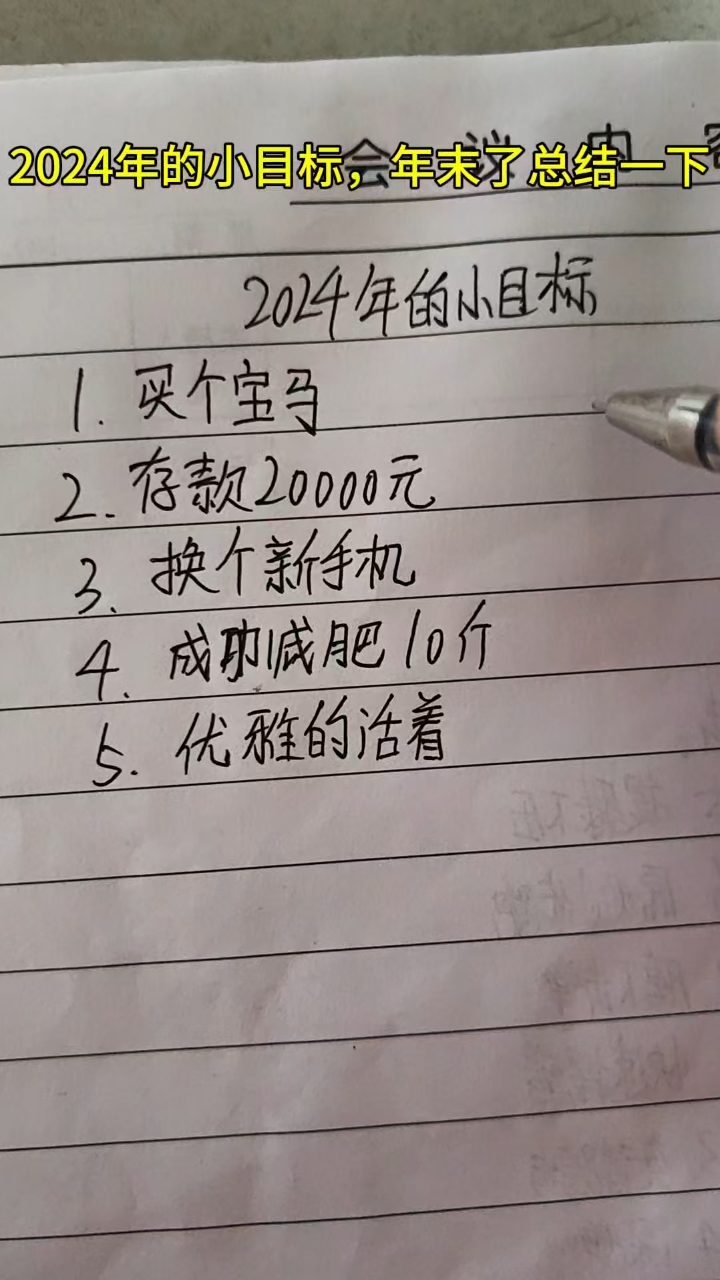 2024年的小目标，年末了总结一下
会议内容
2024年的小目标
1. 买个宝马
2. 存款20000元
3. 换个新手机
4. 成功减肥10斤
5. 优雅的活着